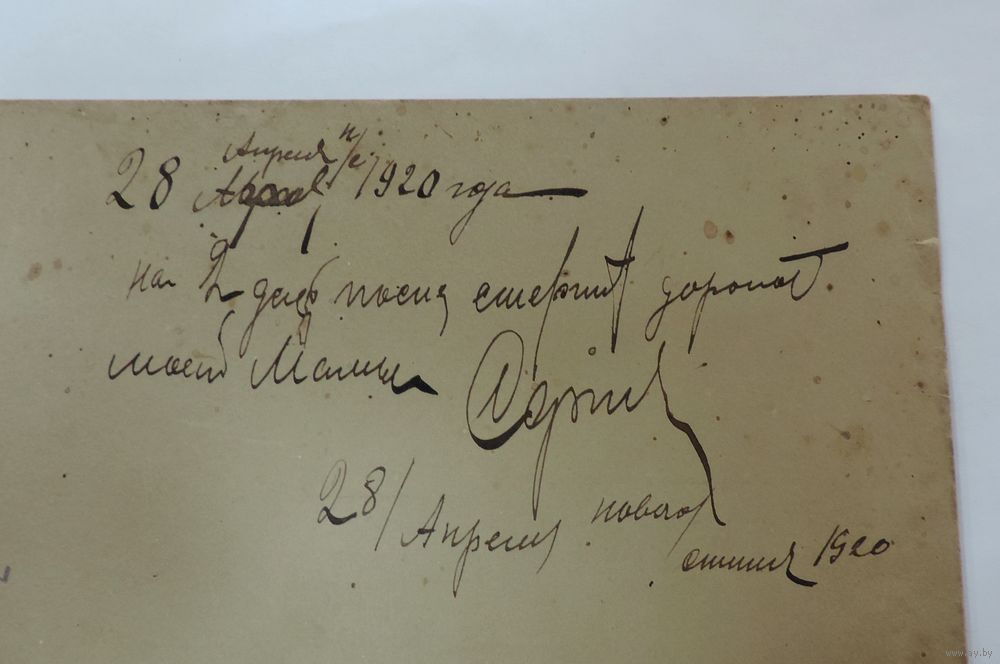 Апреля н/с
28 1920 года
на 2 день после смерти дорогой
моей Мамы
28/ Апреля нового
стиля 1920
www.ay.by